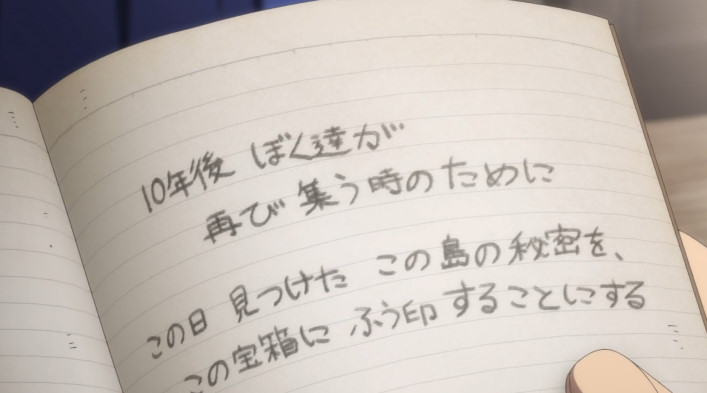 10年後 ぼく達が
再び 集う時のために
この日 見つけた この島の秘密を、
この宝箱に ふう印 することにする